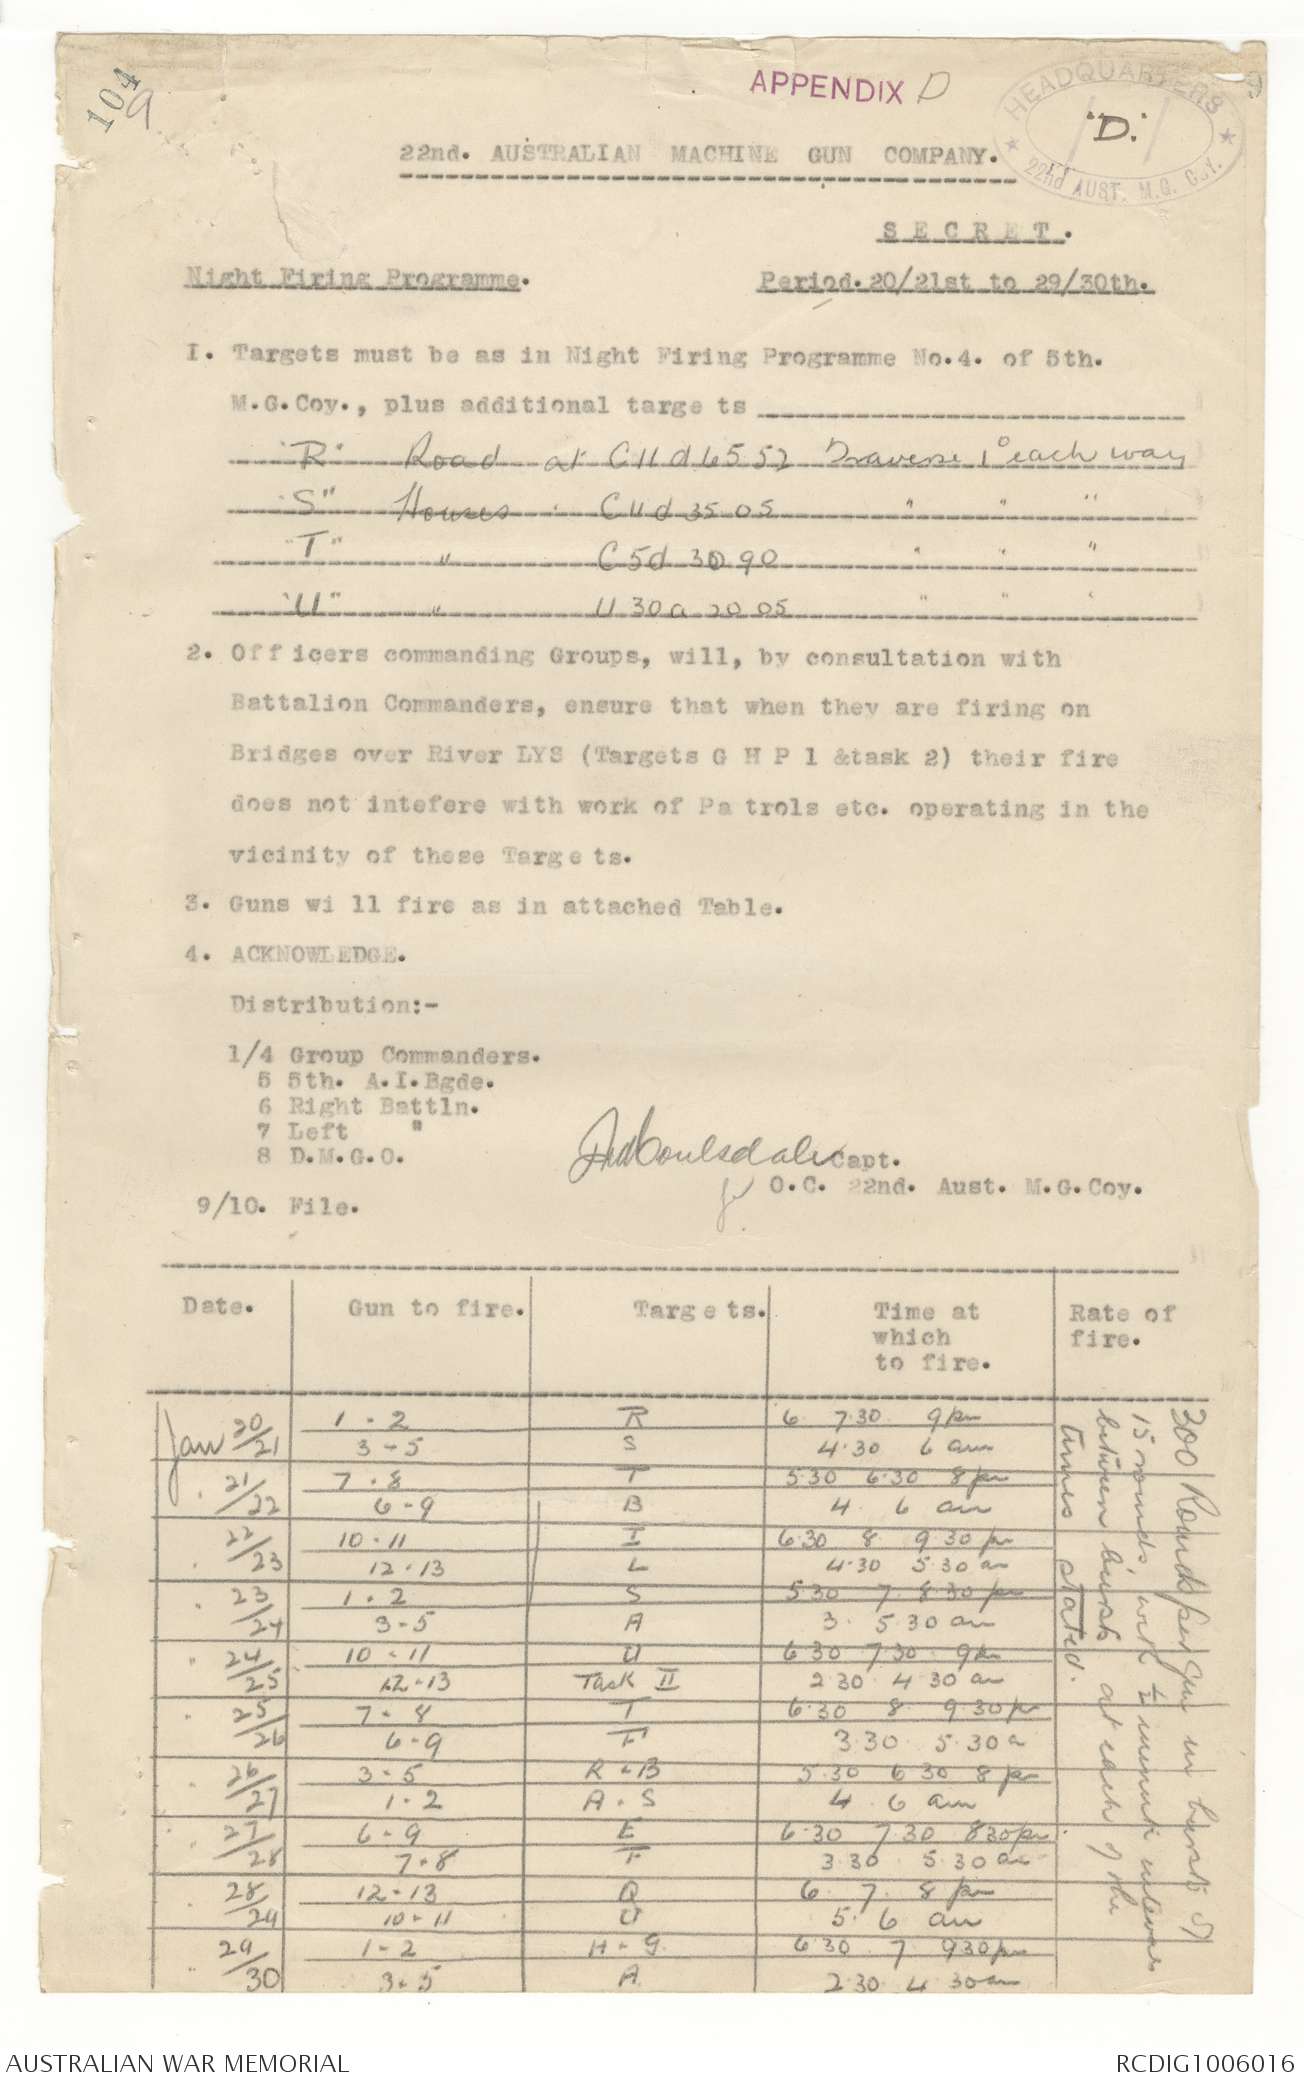 104
9
APPENDIX D
9
HEADQUARTERS
"D."
22nd AUST. M.G. COY.
22nd. AUSTRALIAN MACHINE GUN COMPANY.
SECRET.
Night Firing Programme. Period. 20/21st to 29/30th.
1. Targets must be as in Night Firing Programme No.4. of 5th.
M.G.Coy., plus additional targe ts
"R" Road at C11d 65 52 Traverse 1° each way
"S" Houses " C11d 35 05 " " "
"T" " C5d 30 90 " " "
"U" " U 30a 20 05 " " "
2. Officers commanding Groups, will, by consultation with
Battalion Commanders, ensure that when they are firing on
Bridges over River LYS (Targets G H P 1 &task 2) their fire
does not intefere with work of Pa trols etc. operating in the
vicinity of these Targe ts.
3. Guns wi ll fire as in attached Table.
4. ACKNOWLEDGE.
Distribution:-
1/4 Group Commanders.
5 5th. A.I.Bgde.
6 Right Battln.
7 Left "
8 D.M.G.O.
Capt.
for O.C. 22nd. Aust. M.G.Coy.
9/10. File.
Date. Gun to fire. Targe ts. Time at which to fire. Rate of fire.
Jan 20/21 1 - 2 R 6 7.30 9 pm
3 - 5 S 4.30 6 am
" 21/22 7 - 8 T 5.30 6.30 8 pm
6 - 9 B 4. 6 am
" 22/23 10 - 11 I 6.30 8 9.30 pm
12 - 13 L 4.30 5.30 am
" 23/24 1 - 2 S 5.30 7. 8.30 pm
3 - 5 A 3. 5.30 am
" 24/25 10 - 11 U 6.30 7.30 9 pm
12 - 13 Task II 2.30 4.30 am
" 25/26 7 - 8 T 6.30 8. 9.30 pm
6 - 9 F 3.30 5.30 a
" 26/27 3 - 5 R & B 5.30 6.30 8 pm
1 - 2 A - S 4. 6 am
" 27/28 6 - 9 E 6.30 7.30 8.30 pm
7 - 8 F 3.30 5.30 am
" 28/29 12 - 13 Q 6. 7. 8 pm
10 - 11 U 5. 6 am
" 29/30 1 - 2 H - G 6.30 7. 9.30 pm
3 - 5 A 2.30 4.30 am
200 Rounds per gun in bursts of
15 rounds, with ½ minute interval
between bursts at each of the
times stated.
AUSTRALIAN WAR MEMORIAL RCDIG1006016